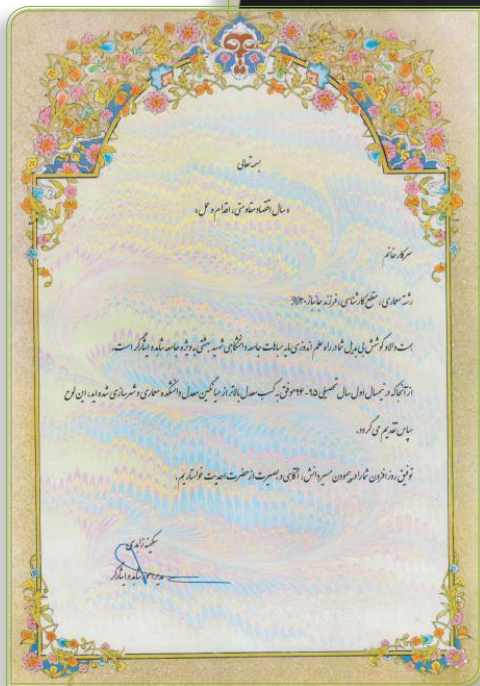 بسمه تعالی
«سال اقتصاد مقاومتی، اقدام و عمل»
سرکار خانم
رشته معماری، مقطع کارشناسی، فرزند جانباز ۲۰٪
همت والا و کوشش بی بدیل شما در راه علم اندوزی مایه مباهات جامعه دانشگاهی شهید بهشتی به ویژه جامعه شاهد و ایثارگر است.
از آنجا که در نیمسال اول سال تحصیلی ۹۵-۹۴ موفق به کسب معدل بالاتر از میانگین معدل دانشکده معماری و شهرسازی شده اید، این لوح
سپاس تقدیم می گردد.
توفیق روز افزون شما را در پیمودن مسیر دانش، آگاهی و بصیرت از حضرت احدیت خواستاریم.
سکینه زاهدی
مدیر امور شاهد و ایثارگر